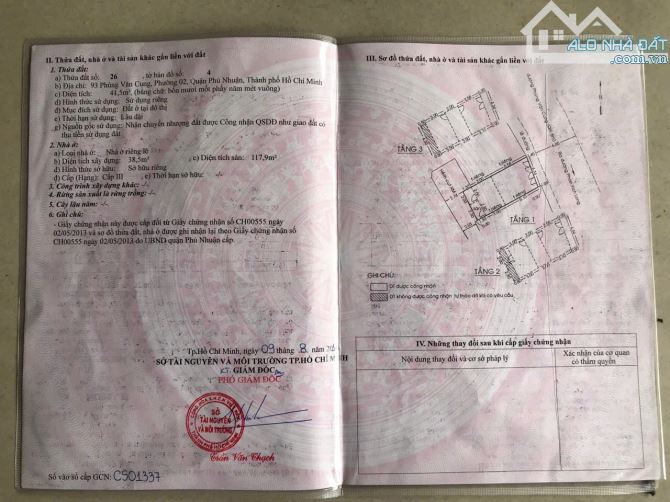 ALO NHÀ ĐẤT
.com.vn
II. Thửa đất, nhà ở và tài sản khác gắn liền với đất
1. Thửa đất:
a) Thửa đất số: 26 , tờ bản đồ số 4
b) Địa chỉ: 93 Phùng Văn Cung, Phường 02, Quận Phú Nhuận, Thành phố Hồ Chí Minh
c) Diện tích: 41,5m², (bằng chữ: bốn mươi mốt phẩy năm mét vuông)
d) Hình thức sử dụng: Sử dụng riêng
đ) Mục đích sử dụng: Đất ở tại đô thị
e) Thời hạn sử dụng: Lâu dài
g) Nguồn gốc sử dụng: Nhận chuyển nhượng đất được Công nhận QSDĐ như giao đất có
thu tiền sử dụng đất
2. Nhà ở:
a) Loại nhà ở: Nhà ở riêng lẻ
b) Diện tích xây dựng: 38,5m² , c) Diện tích sàn: 117,9m²
d) Hình thức sở hữu: Sở hữu riêng
đ) Cấp (Hạng): Cấp III , e) Thời hạn sở hữu: -/-
3. Công trình xây dựng khác: -/-
4. Rừng sản xuất là rừng trồng: -/-
5. Cây lâu năm: -/-
6. Ghi chú:
- Giấy chứng nhận này được cấp đổi từ Giấy chứng nhận số CH00555 ngày
02/05/2013 và sơ đồ thửa đất, nhà ở được ghi nhận lại theo Giấy chứng nhận số
CH00555 ngày 02/05/2013 do UBND quận Phú Nhuận cấp.
Tp.Hồ Chí Minh, ngày 09 tháng 8 năm
SỞ TÀI NGUYÊN VÀ MÔI TRƯỜNG TP.HỒ CHÍ MINH
KT. GIÁM ĐỐC
PHÓ GIÁM ĐỐC
SỞ
TÀI NGUYÊN
VÀ MÔI TRƯỜNG
Trần Văn Thạch
Số vào sổ cấp GCN: CS01337
III. Sơ đồ thửa đất, nhà ở và tài sản khác gắn liền với đất
TẦNG 3
TẦNG 1
TẦNG 2
GHI CHÚ:
DT được công nhận
DT không được công nhận
IV. Những thay đổi sau khi cấp giấy chứng nhận
Nội dung thay đổi và cơ sở pháp lý
Xác nhận của cơ quan
có thẩm quyền